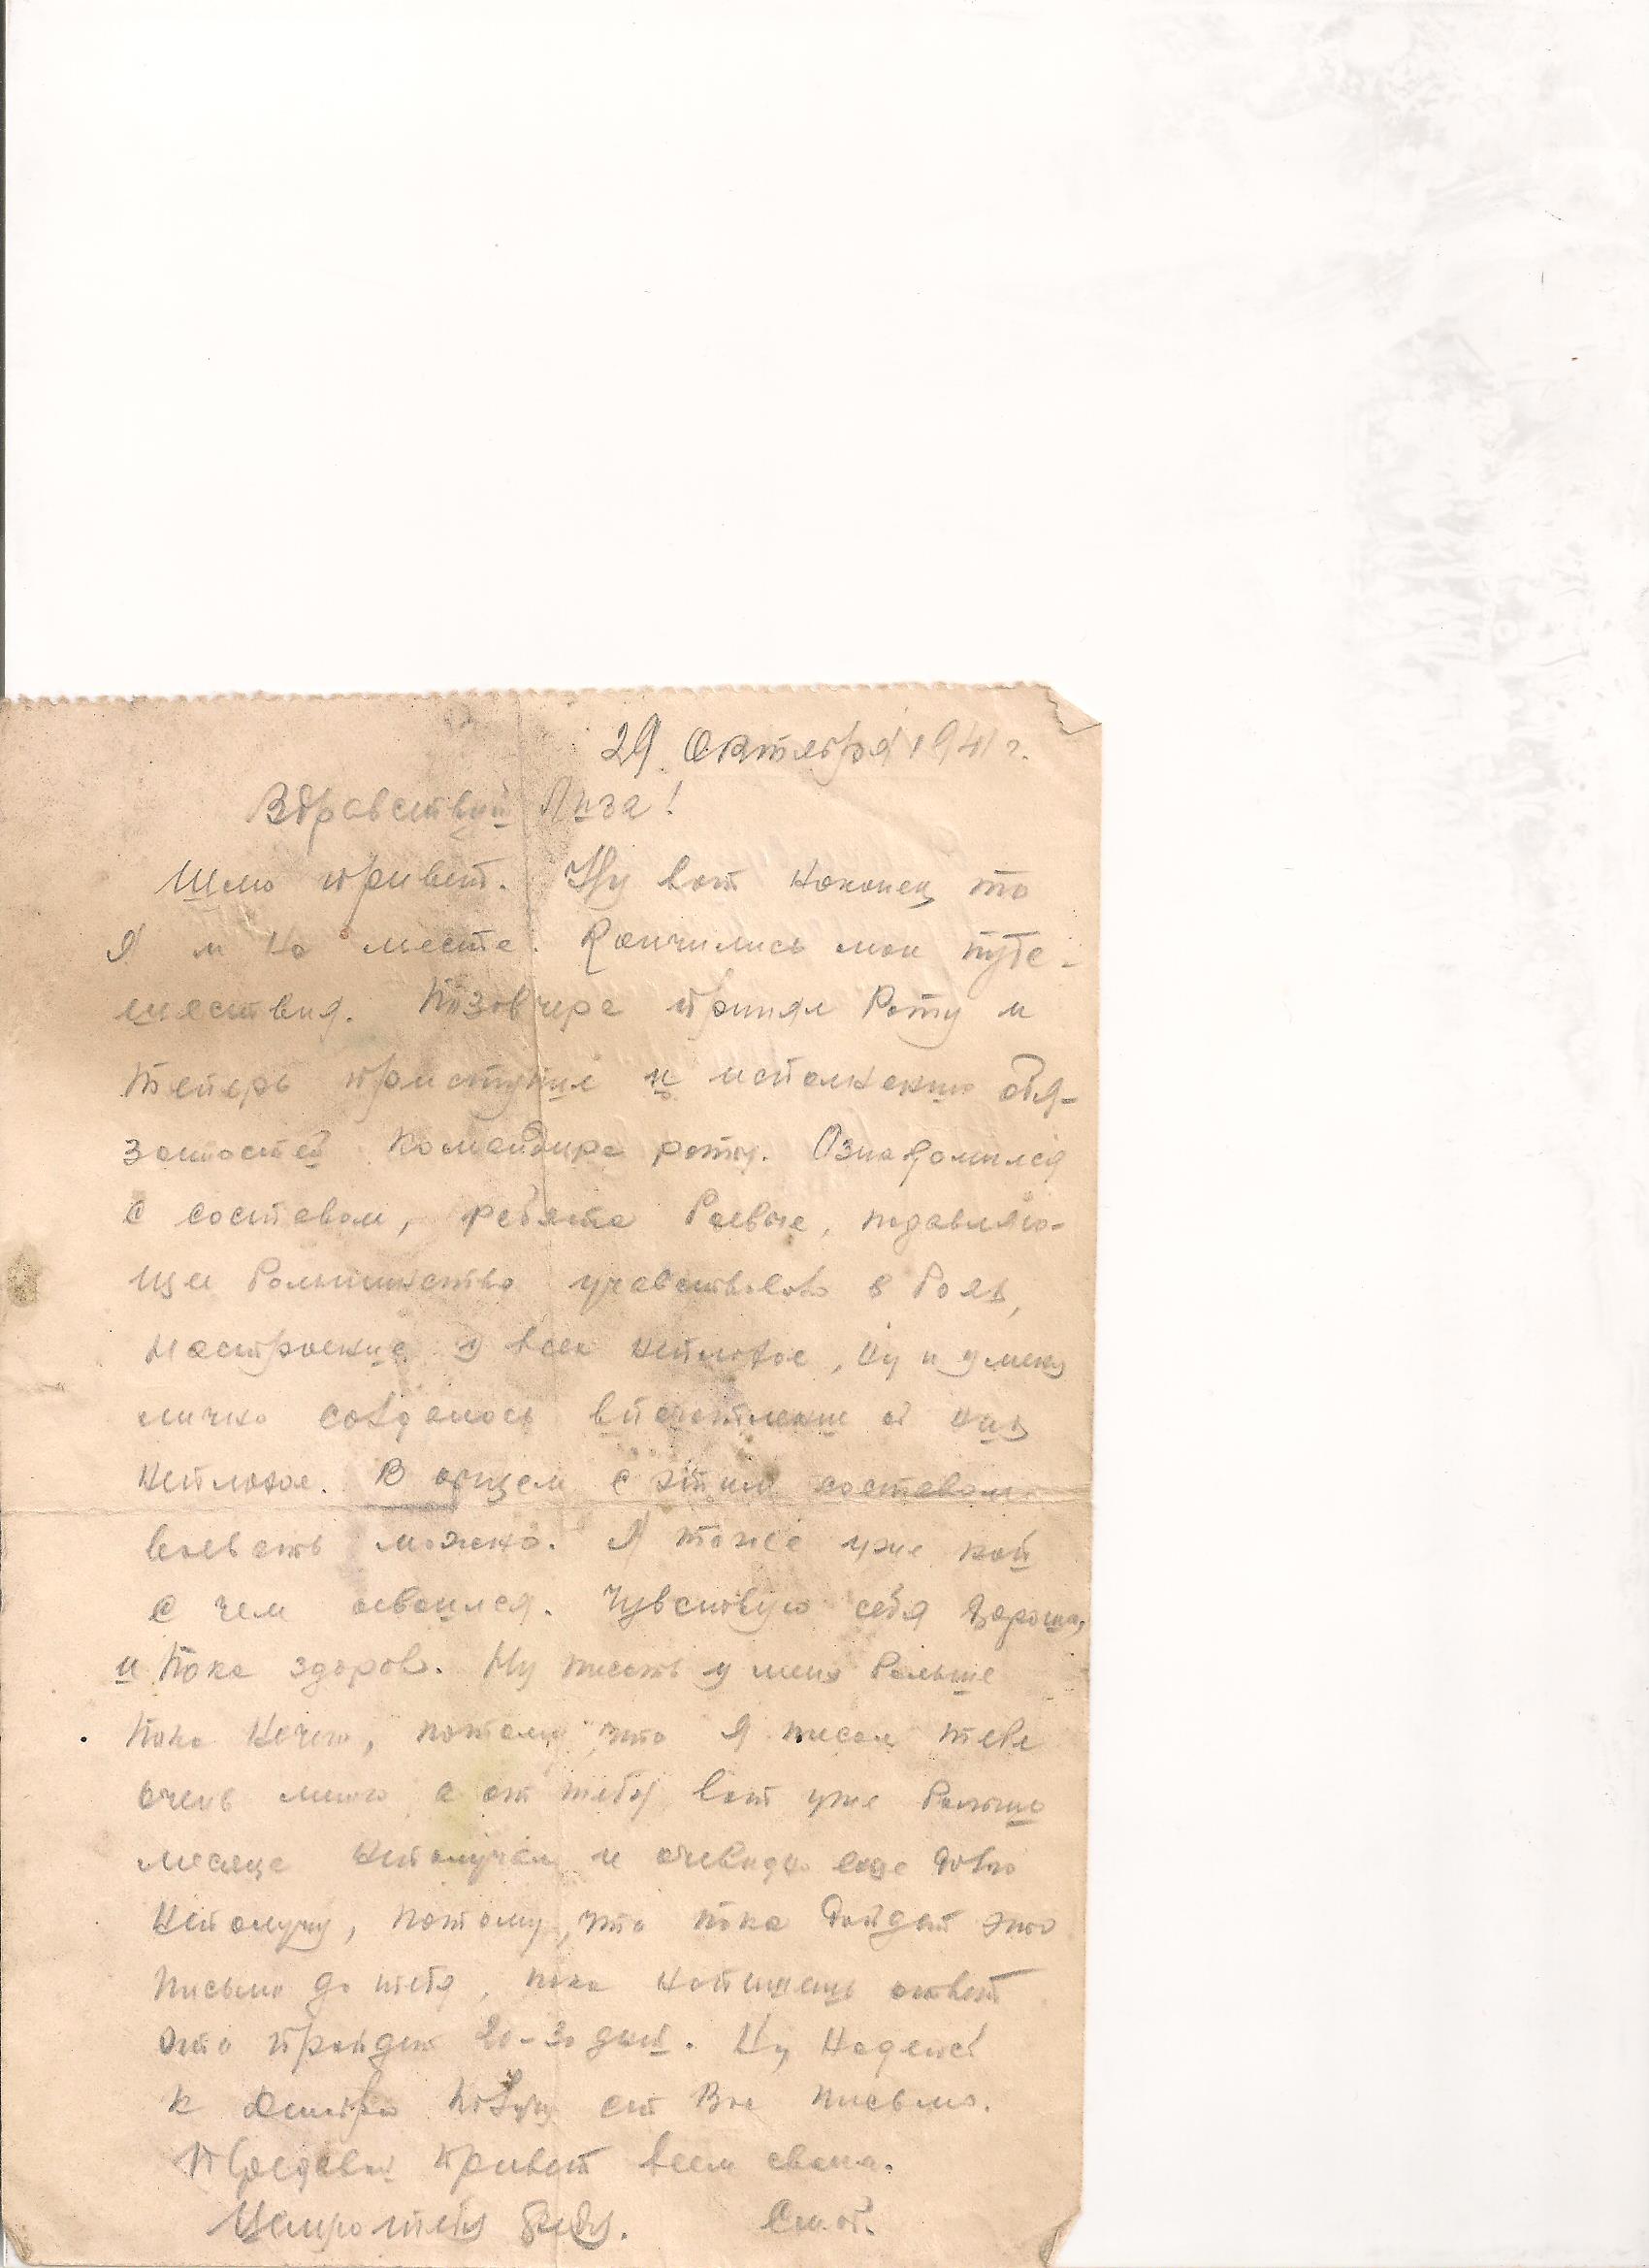 29 Октября 1941 г.
Здравствуй Лиза!
Шлю привет. Ну вот наконец то
я и на месте. Кончились мои путе-
шествия. Позовчера принял Роту и
теперь приступил к исполнению обя-
заностей командира роты. Ознакомился
с составом, ребята боевые, подавляю-
щее большинство учавствовало в боях,
настроение у всех неплохое, ну и у меня
лично создалось впечатление о них
неплохое. В общем с этим составом
воевать можно. Я тоже уже кой
с чем освоился. Чувствую себя хорошо,
и пока здоров. Ну писать у меня больше
пока нечего, потому, что я писал тебе
очень много, а от тебя вот уже больше
месяца неполучал и очевидно еще долго
неполучу, потому, что пока дойдет это
письмо до тебя, пока напишешь ответ
это пройдет 20-30 дней. Ну, Надеюсь
к Октябрю от Вас письмо.
Передавай привет всем своим.
Целую тебя